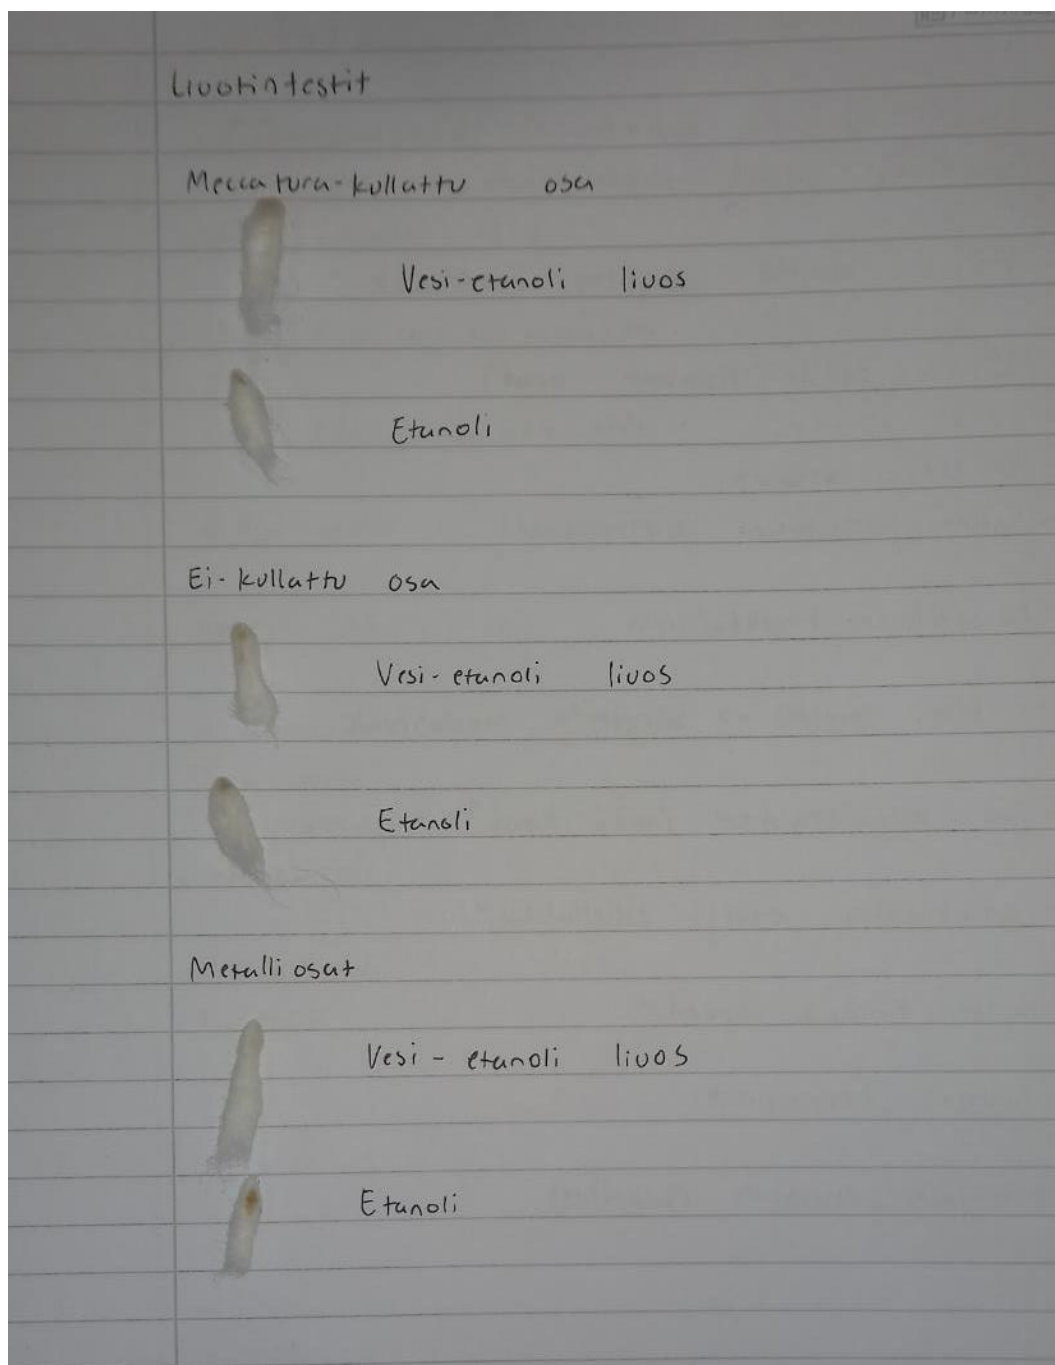 Liuotintestit
Meccatura-kullattu osa
Vesi-etanoli liuos
Etanoli
Ei-kullattu osa
Vesi-etanoli liuos
Etanoli
Metalli osat
Vesi-etanoli liuos
Etanoli